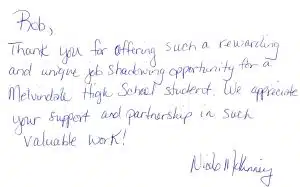 Rob,
Thank you for offering such a rewarding
and unique job shadowing opportunity for a
Melvindale High School student. We appreciate
your support and partnership in such
valuable work!